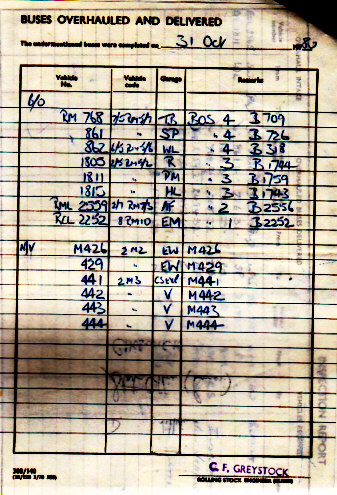 BUSES OVERHAULED AND DELIVERED
The undermentioned buses were completed on 31 Oct 1980
Vehicle No. Vehicle code Garage Remarks
O/O
RM 768 TB BOS 4 B709
861 " SP " 4 B726
862 WL " 4 B318
1805 R " 3 B1744
1811 " PM " 3 B1759
1815 " HL " 3 B1743
RML 2559 AF " 2 B2556
RCL 2252 8RM10 EM " 1 B2252
N/V M426 2M2 EW M426
429 " EW M429
441 2M3 M441
442 " V M442
443 " V M443
444 " V M444
C. F. GREYSTOCK
ROLLING STOCK ENGINEER